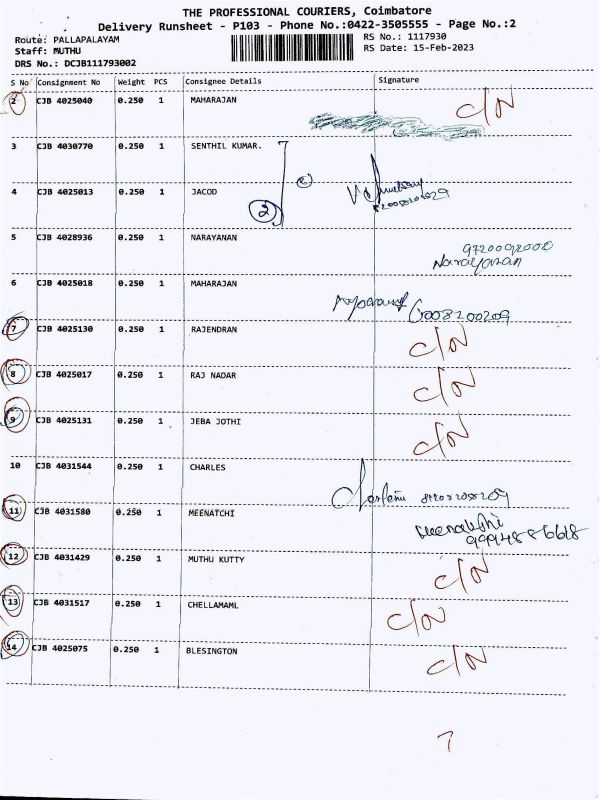 THE PROFESSIONAL COURIERS, Coimbatore
Delivery Runsheet - P103 - Phone No.:0422-3505555 - Page No.:2
Route: PALLAPALAYAM
RS No.: 1117930
Staff: MUTHU
RS Date: 15-Feb-2023
DRS No.: DCJB111793002
S No Consignment No Weight PCS Consignee Details Signature
2 CJB 4025040 0.250 1 MAHARAJAN C/N
3 CJB 4030770 0.250 1 SENTHIL KUMAR.
4 CJB 4025013 0.250 1 JACOD 2
5 CJB 4028936 0.250 1 NARAYANAN
Narayanan
6 CJB 4025018 0.250 1 MAHARAJAN
7 CJB 4025130 0.250 1 RAJENDRAN C/N
8 CJB 4025017 0.250 1 RAJ NADAR C/N
9 CJB 4025131 0.250 1 JEBA JOTHI C/N
10 CJB 4031544 0.250 1 CHARLES
11 CJB 4031580 0.250 1 MEENATCHI
12 CJB 4031429 0.250 1 MUTHU KUTTY C/N
13 CJB 4031517 0.250 1 CHELLAMAML C/N
14 CJB 4025075 0.250 1 BLESINGTON C/N
7